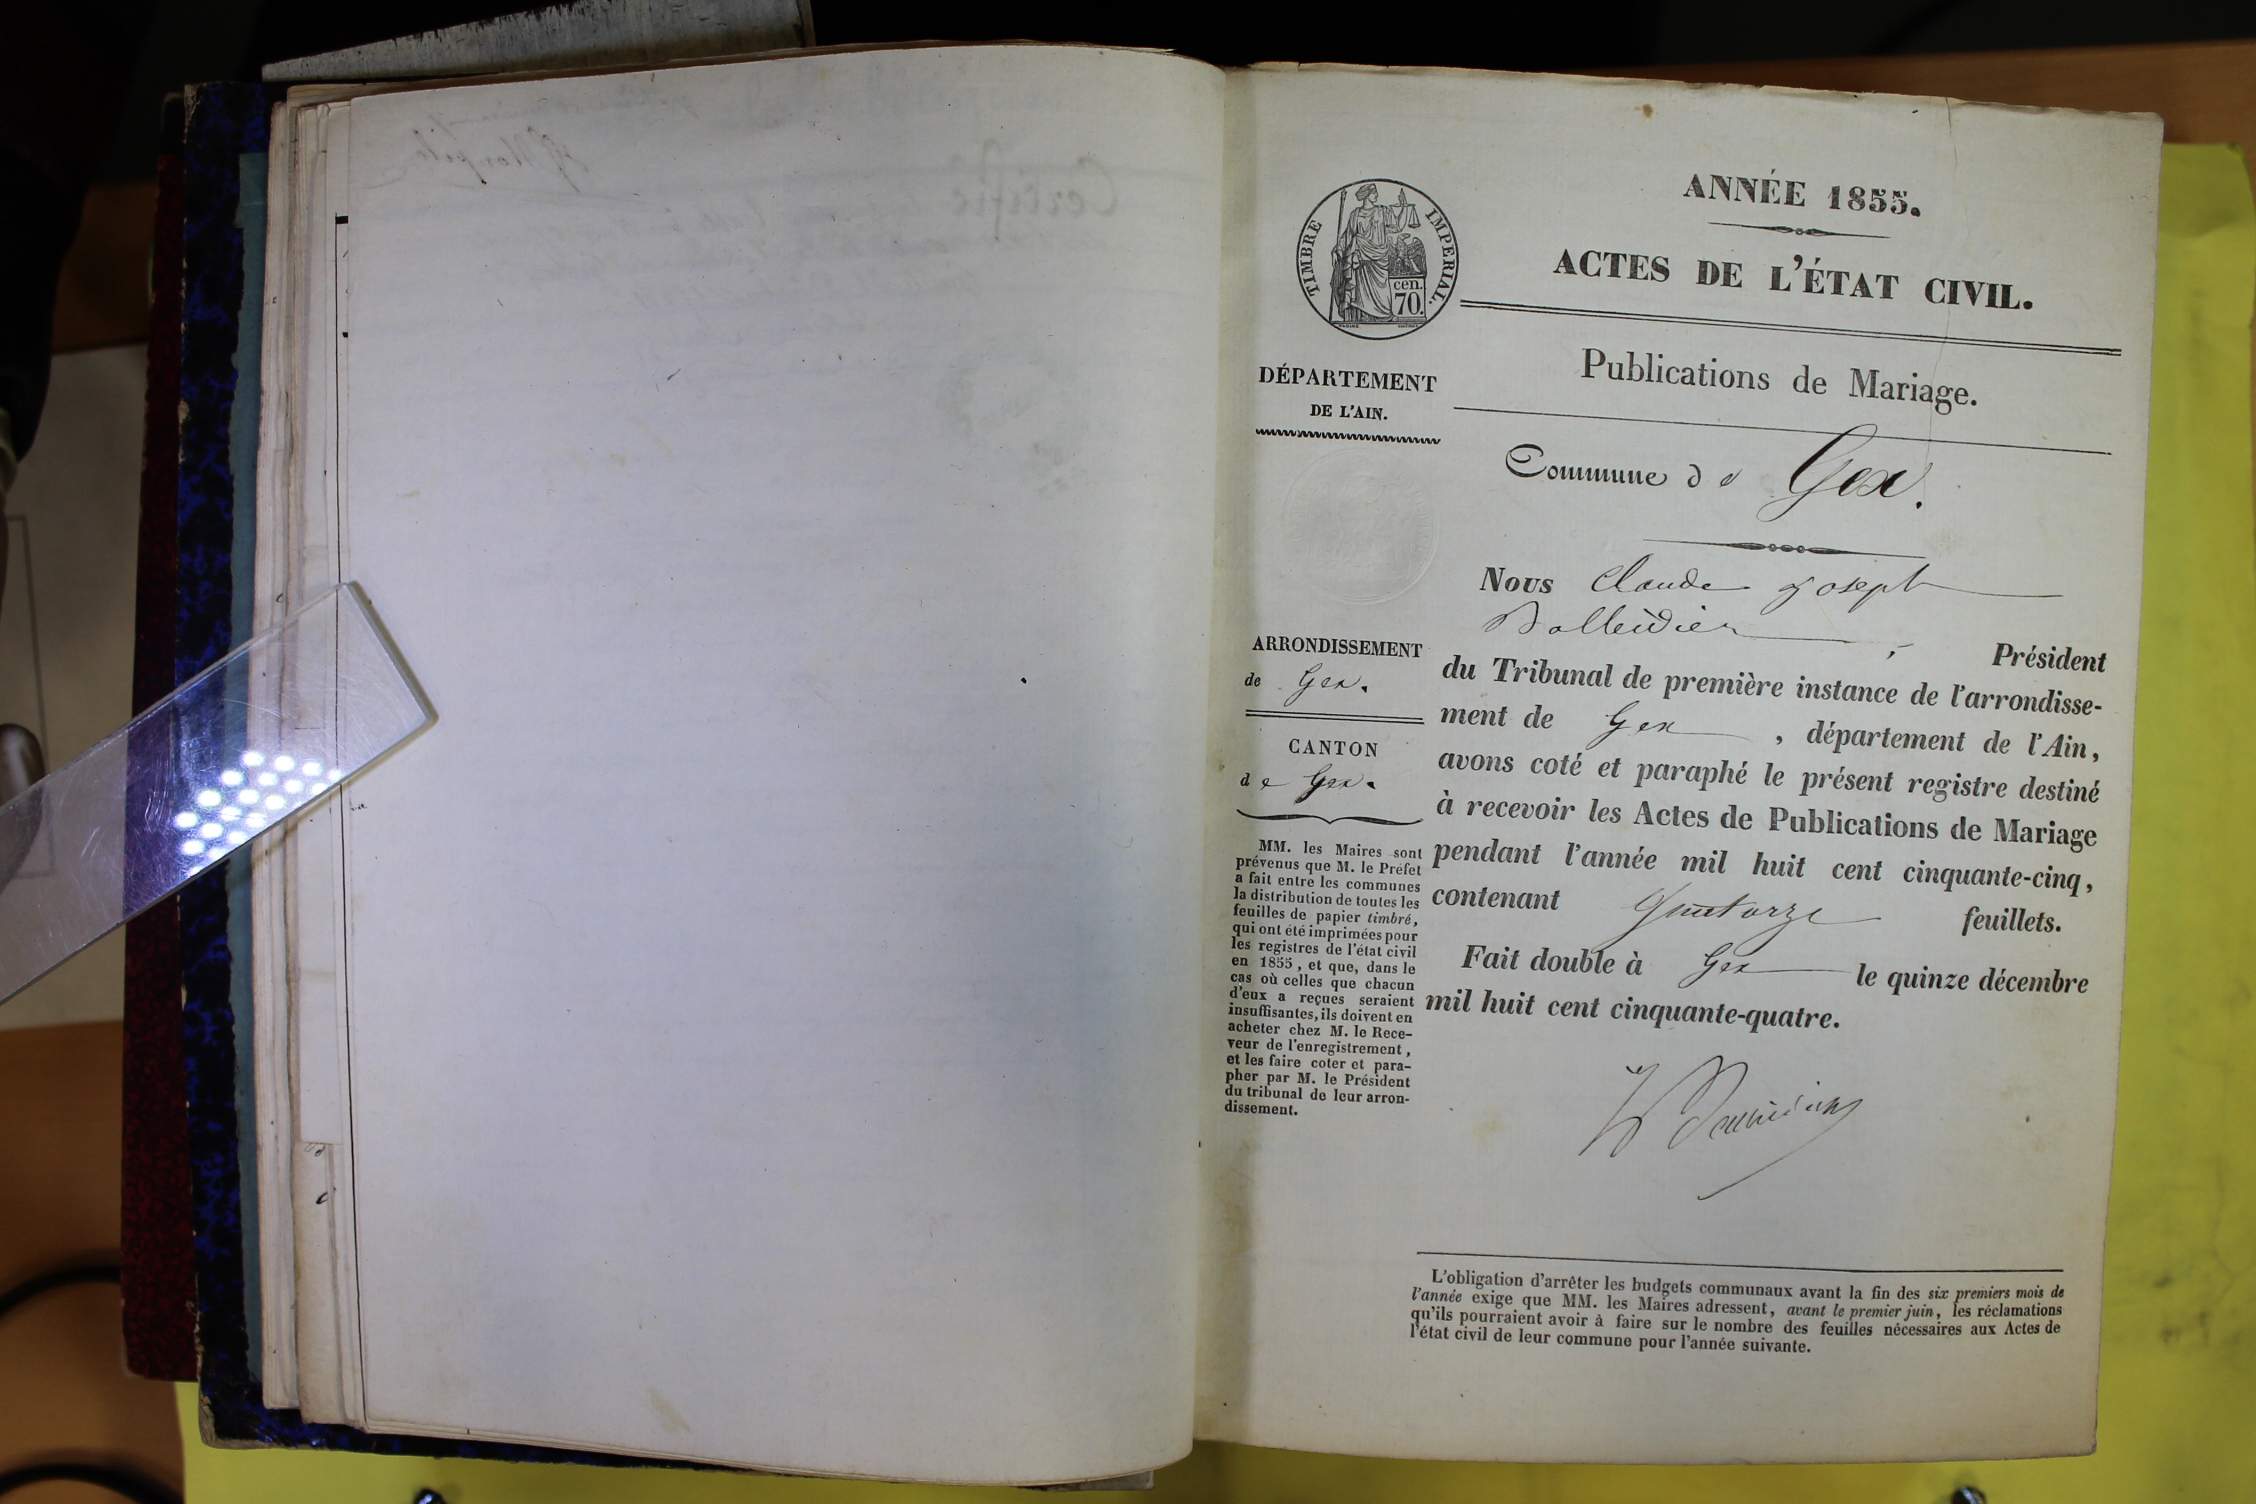 ANNÉE 1855.
ACTES DE L'ÉTAT CIVIL.
TIMBRE IMPERIAL.
cen.
70.
Publications de Mariage.
DÉPARTEMENT
DE L'AIN.
Commune de Gex.
Nous Claude Joseph
, Président
du Tribunal de première instance de l'arrondisse-
ment de Gex, département de l'Ain,
avons coté et paraphé le présent registre destiné
à recevoir les Actes de Publications de Mariage
pendant l'année mil huit cent cinquante-cinq,
contenant Quatorze feuillets.
Fait double à Gex le quinze décembre
mil huit cent cinquante-quatre.
ARRONDISSEMENT
de Gex.
CANTON
de Gex.
MM. les Maires sont
prévenus que M. le Préfet
a fait entre les communes
la distribution de toutes les
feuilles de papier timbré,
qui ont été imprimées pour
les registres de l'état civil
en 1855, et que, dans le
cas où celles que chacun
d'eux a reçues seraient
insuffisantes, ils doivent en
acheter chez M. le Rece-
veur de l'enregistrement,
et les faire coter et para-
pher par M. le Président
du tribunal de leur arron-
dissement.
L'obligation d'arrêter les budgets communaux avant la fin des six premiers mois de
l'année exige que MM. les Maires adressent, avant le premier juin, les réclamations
qu'ils pourraient avoir à faire sur le nombre des feuilles nécessaires aux Actes de
l'état civil de leur commune pour l'année suivante.